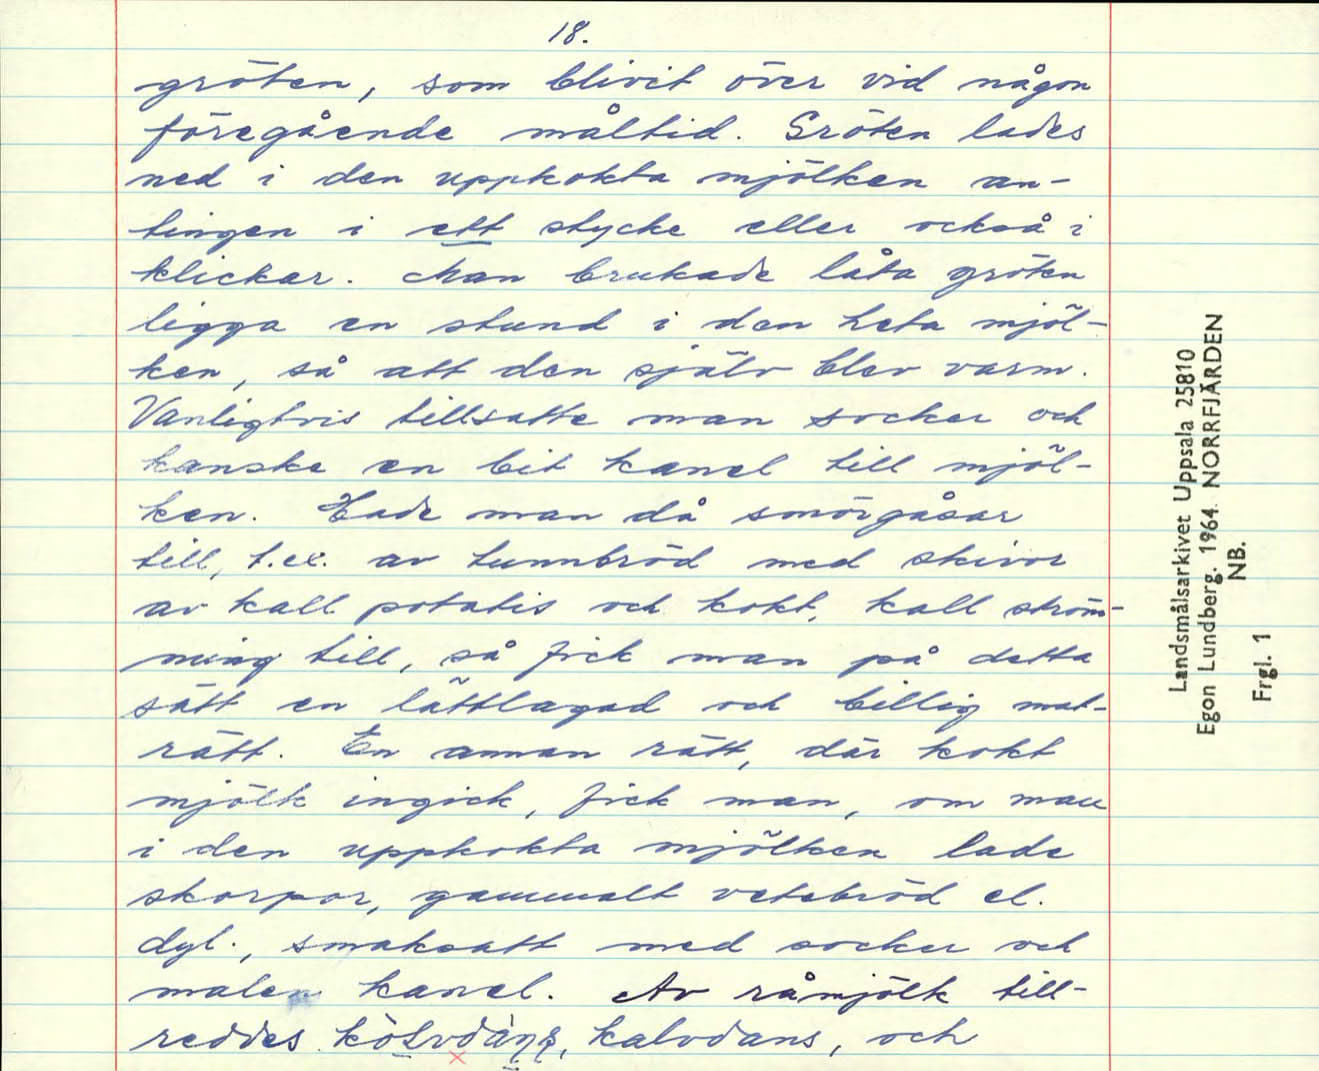 18.
gröten, som blivit över vid någon
föregående måltid. Gröten lades
ned i den uppkokta mjölken an-
tingen i ett stycke eller också i
klickar. Man brukade låta gröten
ligga en stund i den heta mjöl-
ken, så att den själv blev varm.
Vanligtvis tillsatte man socker och
kanske en bit kanel till mjöl-
ken. Hade man då smörgåsar
till, t.ex. av tunnbröd med skivor
av kall potatis och kokt, kall ström-
ming till, så fick man på detta
sätt en lättlagad och billig mat-
rätt. En annan rätt, där kokt
mjölk ingick, fick man, om man
i den uppkokta mjölken lade
skorpor, gammalt vetebröd el.
dyl., smaksatt med socker och
malen kanel. Av råmjölk till-
reddes kalvdans, och
Landsmålsarkivet Uppsala 25810
Egon Lundberg. 1964. NORRFJÄRDEN
NB.
Frgl. 1